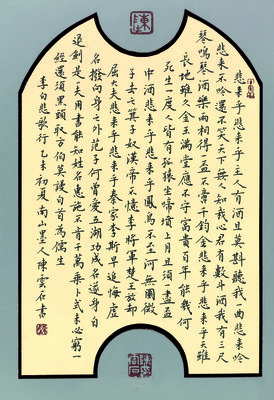 悲來乎悲來乎主人有酒且莫斟聽我一曲悲來吟
悲來不吟還不笑天下無人知我心君有數斗酒我有三尺
琴鳴琴酒樂兩相得一盃不啻千鈞金悲來乎悲來乎天雖
長地雖久金玉滿堂應不守富貴百年能幾何
死生一度人皆有孤猿坐啼墳上月且須一盡盃
中酒悲來乎悲來乎鳳鳥不至河無圖微
子去之箕子奴漢帝不憶李將軍楚王放却
屈大夫悲來乎悲來乎秦家李斯早追悔虛
名撥向身之外范子何曾愛五湖功成名遂身自
退劍是一夫用書能知姓名惠施不肯干萬乘卜式未必窮一
經還須黑頭取方伯莫謾白首為儒生
李白悲歌行乙未初夏南山墨人陳雲石書